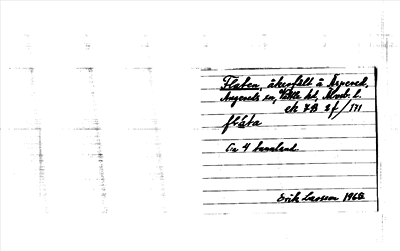 Flaten, åkerfält å Aspered,
Angereds sn, Vättle hd, Älvsb. l.
ek 7B 2f/
flåta
Ca 4 tunnland.
Erik Larsson 1966